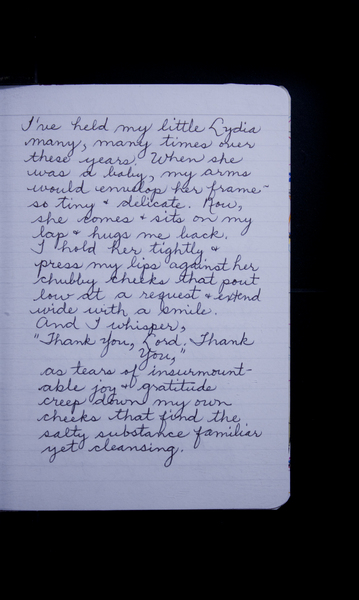 I've held my little Lydia
many, many times over
these years. When she
was a baby, my arms
would envelop her frame-
so tiny & delicate. Now,
she comes & sits on my
lap & hugs me back.
I hold her tightly &
press my lips against her
chubby cheeks that pout
low at a request & extend
wide with a smile.
And I whisper,
"Thank You, Lord. Thank
You,"
as tears of insurmount-
able joy & gratitude
creep down my own
cheeks that find the
salty substance familiar
yet cleansing.